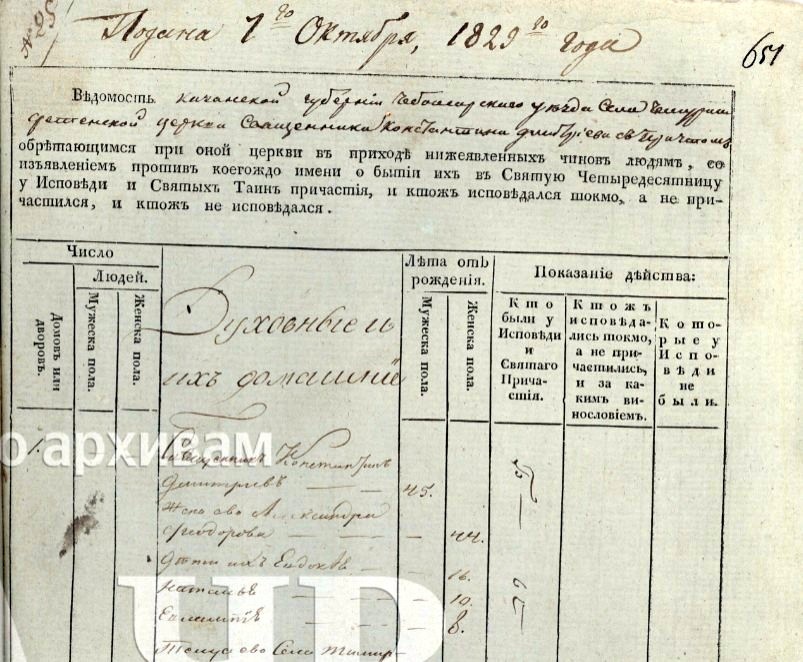 № 25
Подана 7го Октября, 1829го года
651
Вѣдомость казанской губернiи Чебоксарскаго уѣзда Села
церкви Священника Константина Дмитрiева съ причтомъ
обрѣтающимся при оной церкви въ приходѣ нижеявленныхъ чиновъ людямъ, со
изъявленiемъ противъ коегождо имени о бытiи ихъ въ Святую Четыредесятницу
у Исповѣди и Святыхъ Таинъ причастiя, и ктожъ исповѣдался токмо, а не при-
частился, и ктожъ не исповѣдался.
Число
Людей.
Домовъ или дворовъ.
Мужеска пола.
Женска пола.
Духовные и
ихъ домашнiе
Лѣта отъ
рожденiя.
Мужеска пола.
Женска пола.
Показанiе дѣйства:
Кто
были у
Исповѣди
и
Святаго
Прича-
стiя.
Ктожъ
исповѣда-
лись токмо,
а не при-
частились,
и за ка-
кимъ ви-
нословiемъ.
Кото-
рые у
Испо-
вѣди
не
были.
о архивам
1.
Священникъ Константинъ
Дмитрiевъ — — 45.
Жена ево Александра
Феодорова — — — — 44.
Дѣти ихъ Евдокѣя — — 16.
Наталья — — — 10.
Евлампiя — — 8.
Тогожъ Села
AUP